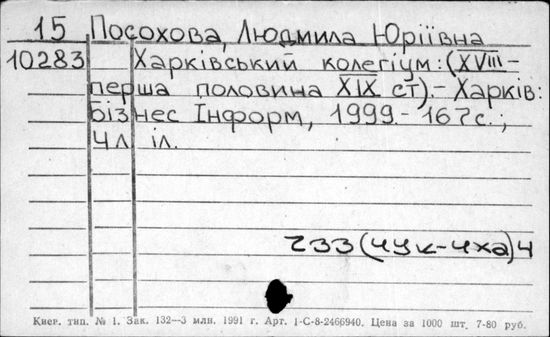 15 Посохова, Людмила Юріївна
10283 Харківський колегіум: (XVIII-
перша половина XIX ст).- Харків:
Бізнес Інформ, 1999.- 167с.;
4л іл.
Ч33(4Ук-4Ха)4
Киев. тип. № 1. Зак. 132—3 млн. 1991 г. Арт. 1-С-8-2466940. Цена за 1000 шт. 7-80 руб.